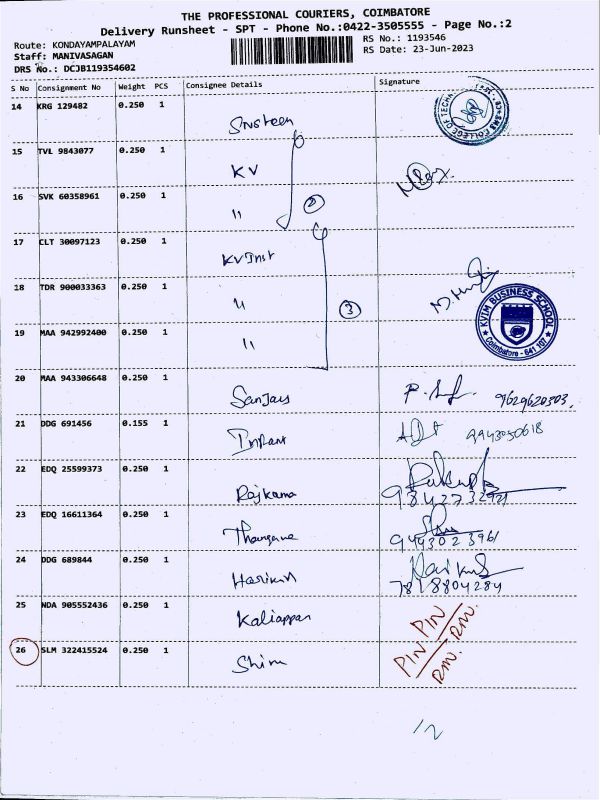 THE PROFESSIONAL COURIERS, COIMBATORE
Delivery Runsheet - SPT - Phone No.:0422-3505555 - Page No.:2
Route: KONDAYAMPALAYAM
RS No.: 1193546
Staff: MANIVASAGAN
RS Date: 23-Jun-2023
DRS No.: DCJB119354602
S No Consignment No Weight PCS Consignee Details Signature
14 KRG 129482 0.250 1
15 TVL 9843077 0.250 1 KV
16 SVK 60358961 0.250 1 "
2
17 CLT 30097123 0.250 1 KV Inst
18 TDR 900033363 0.250 1 "
3
KVIM BUSINESS SCHOOL
Coimbatore - 641 107
19 MAA 942992400 0.250 1 "
20 MAA 943306648 0.250 1 Sanjay 9629620303.
21 DDG 691456 0.155 1 9943050618
22 EDQ 25599373 0.250 1 Rajkama
23 EDQ 16611364 0.250 1 Thangave 9443023961
24 DDG 689844 0.250 1 Harikish 7818804284
25 NDA 905552436 0.250 1 Kaliappan PIN RMV.
26 SLM 322415524 0.250 1 Shim PIN RMV.
1/2